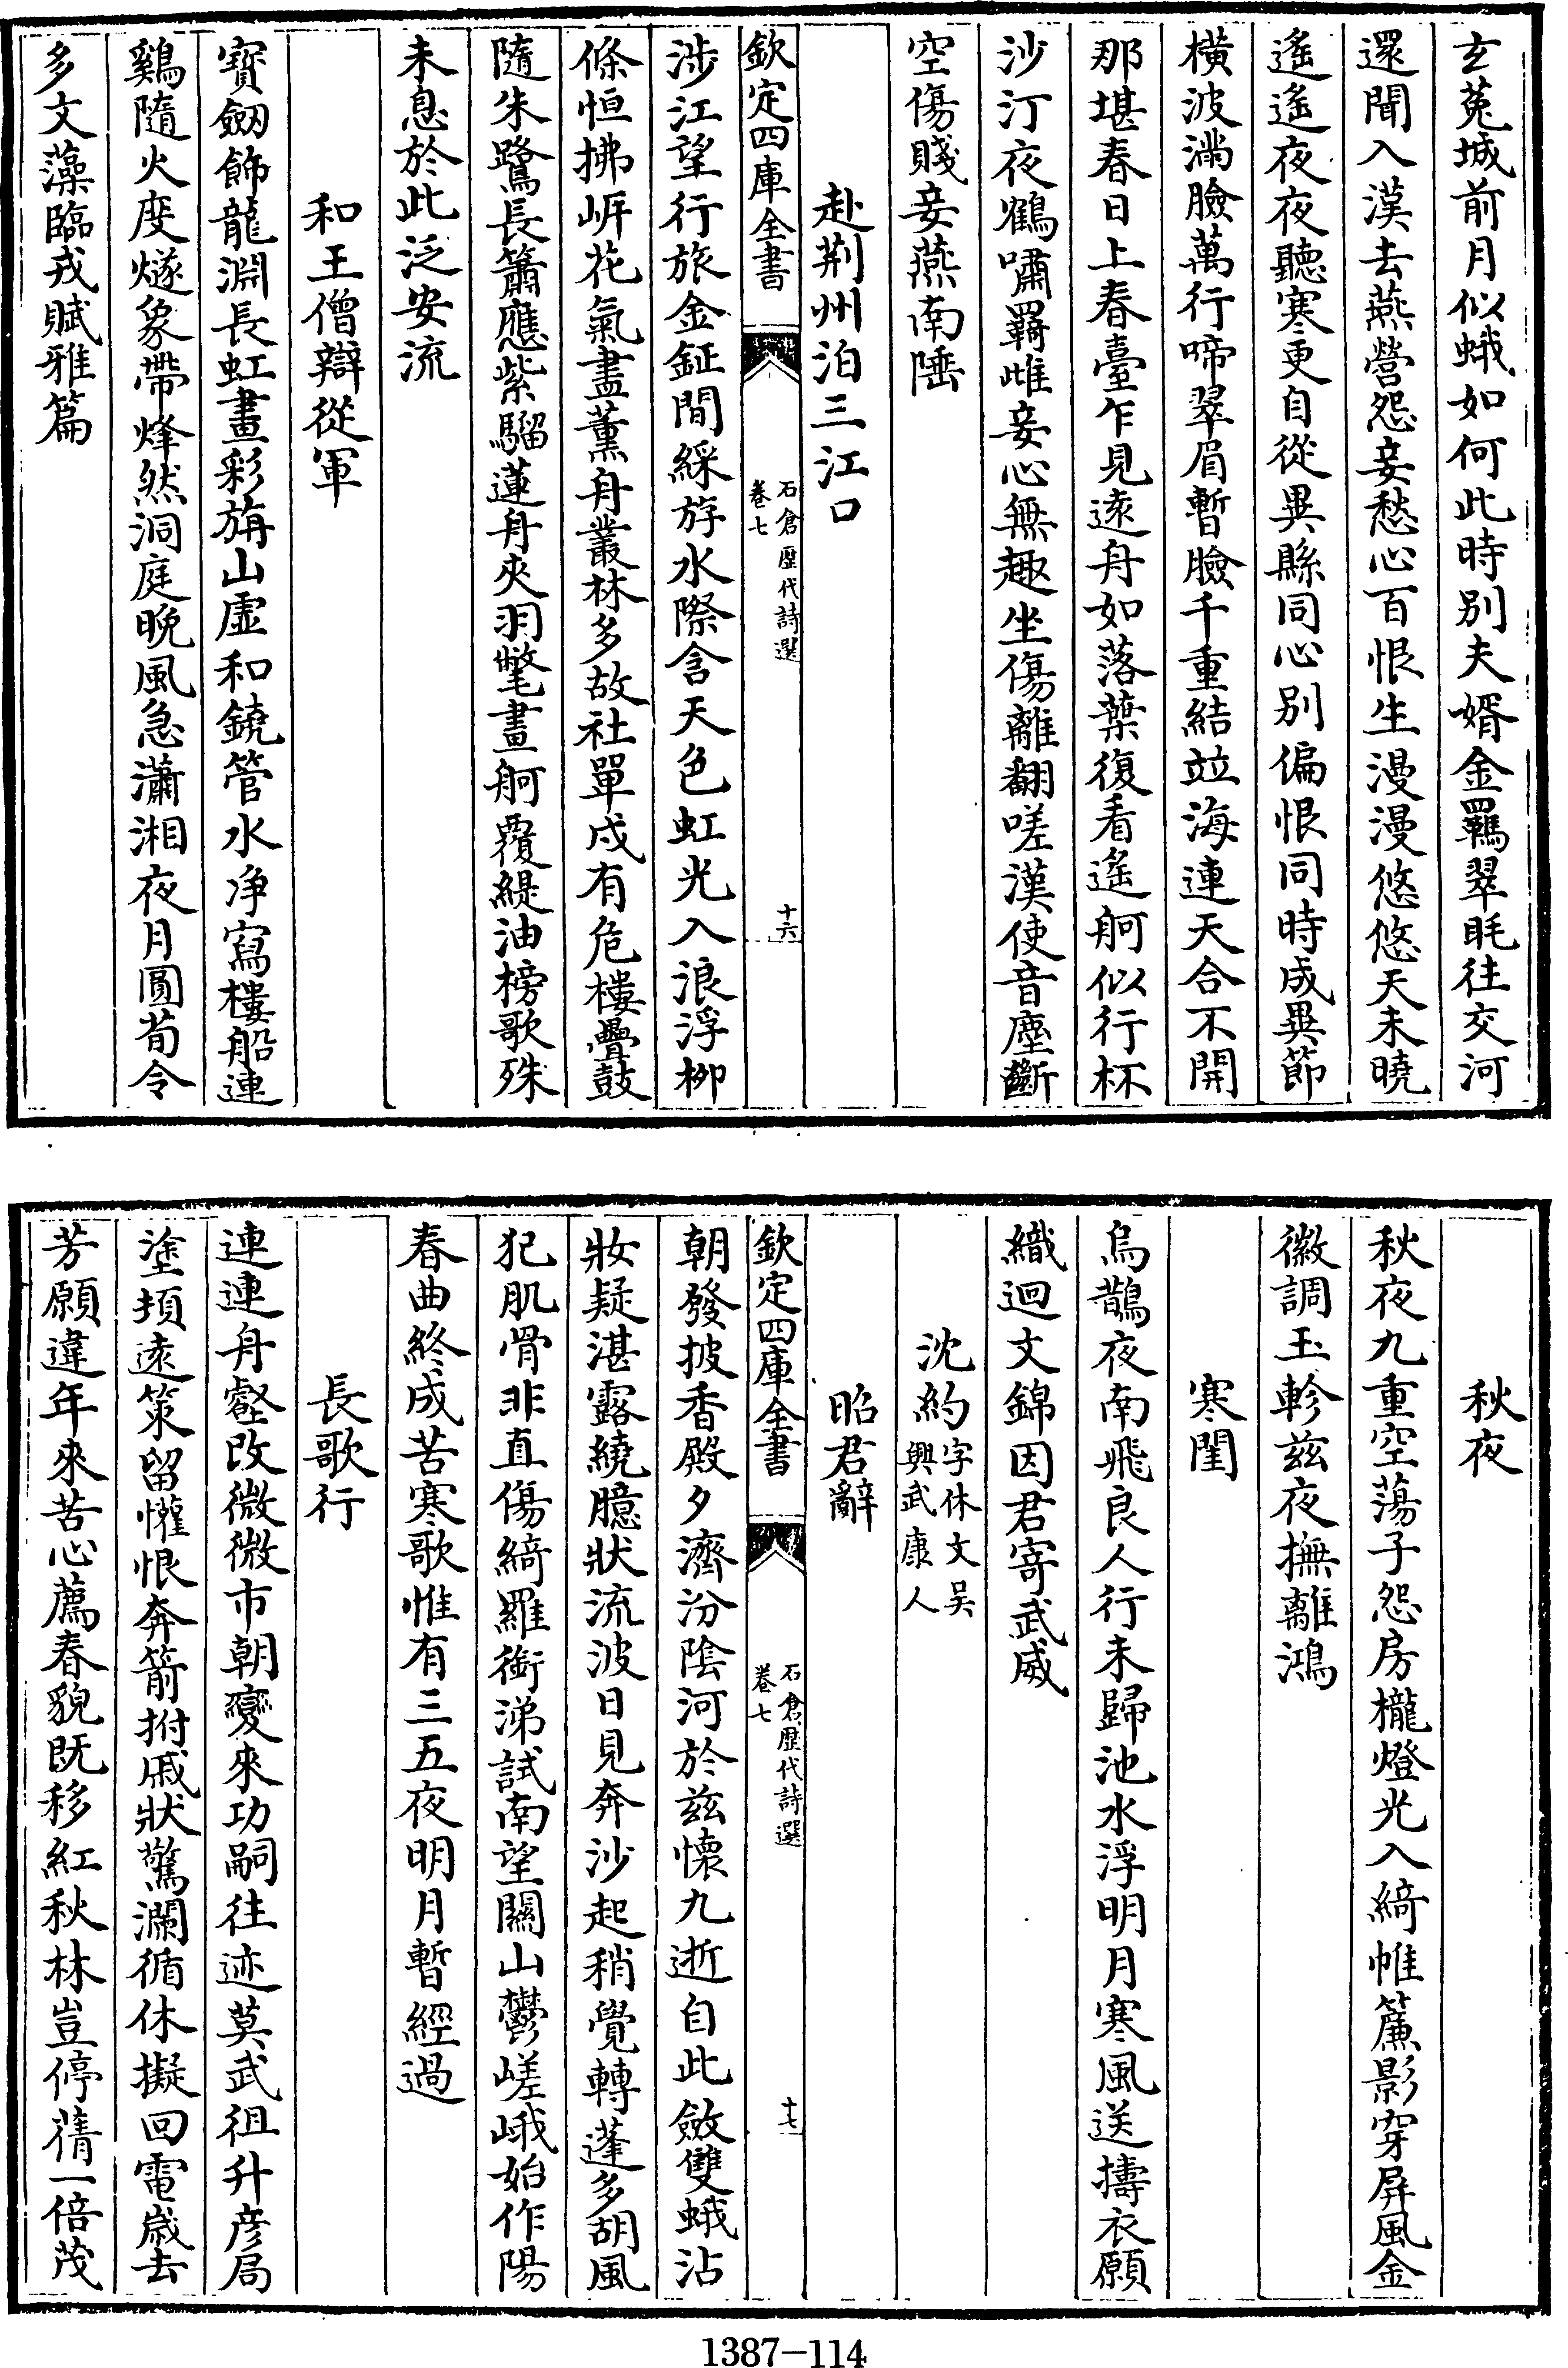 玄菟城前月似蛾如何此時别夫婿金羈翠毦往交河
還聞入漢去燕營怨妾愁心百恨生漫漫悠悠天未曉
遙遙夜夜聽寒更自從異縣同心别偏恨同時成異節
横波滿臉萬行啼翠眉暫臉千重結竝海連天合不開
那堪春日上春臺乍見遠舟如落葉復看遙舸似行杯
沙汀夜鶴嘯羇雌妾心無趣坐傷離翻嗟漢使音塵斷
空傷賤妾燕南陲
赴荆州泊三江口
欽定四庫全書
石倉歴代詩選
卷七
十六
涉江望行旅金鉦間綵斿水際含天色虹光入浪浮柳
條恒拂岍花氣盡薰舟叢林多故社單戍有危樓疊鼓
隨朱鷺長簫應紫騮蓮舟夾羽氅畫舸覆緹油榜歌殊
未息於此泛安流
和王僧辯從軍
寶劒飾龍淵長虹畫彩旃山虛和鐃管水净寫樓船連
鷄隨火度燧象帶烽然洞庭晚風急瀟湘夜月圓荀令
多文藻臨戎賦雅篇
秋夜
秋夜九重空蕩子怨房櫳燈光入綺帷簾影穿屏風金
徽調玉軫兹夜撫離鴻
寒閨
烏鵲夜南飛良人行未歸池水浮明月寒風送擣衣願
織迴文錦因君寄武威
沈約字休文吳
興武康人
昭君辭
欽定四庫全書
石倉歴代詩選
卷七
十七
朝發披香殿夕濟汾陰河於兹懷九逝自此斂雙蛾沾
妝疑湛露繞臆狀流波日見奔沙起稍覺轉蓬多胡風
犯肌骨非直傷綺羅銜涕試南望關山鬱嵯峨始作陽
春曲終成苦寒歌惟有三五夜明月暫經過
長歌行
連連舟壑改微微市朝變來功嗣往迹莫武徂升彦局
塗頓遠策留懽恨奔箭拊戚狀驚瀾循休擬回電歲去
芳願違年來苦心薦春貌既移紅秋林豈停蒨一倍茂
1387-114